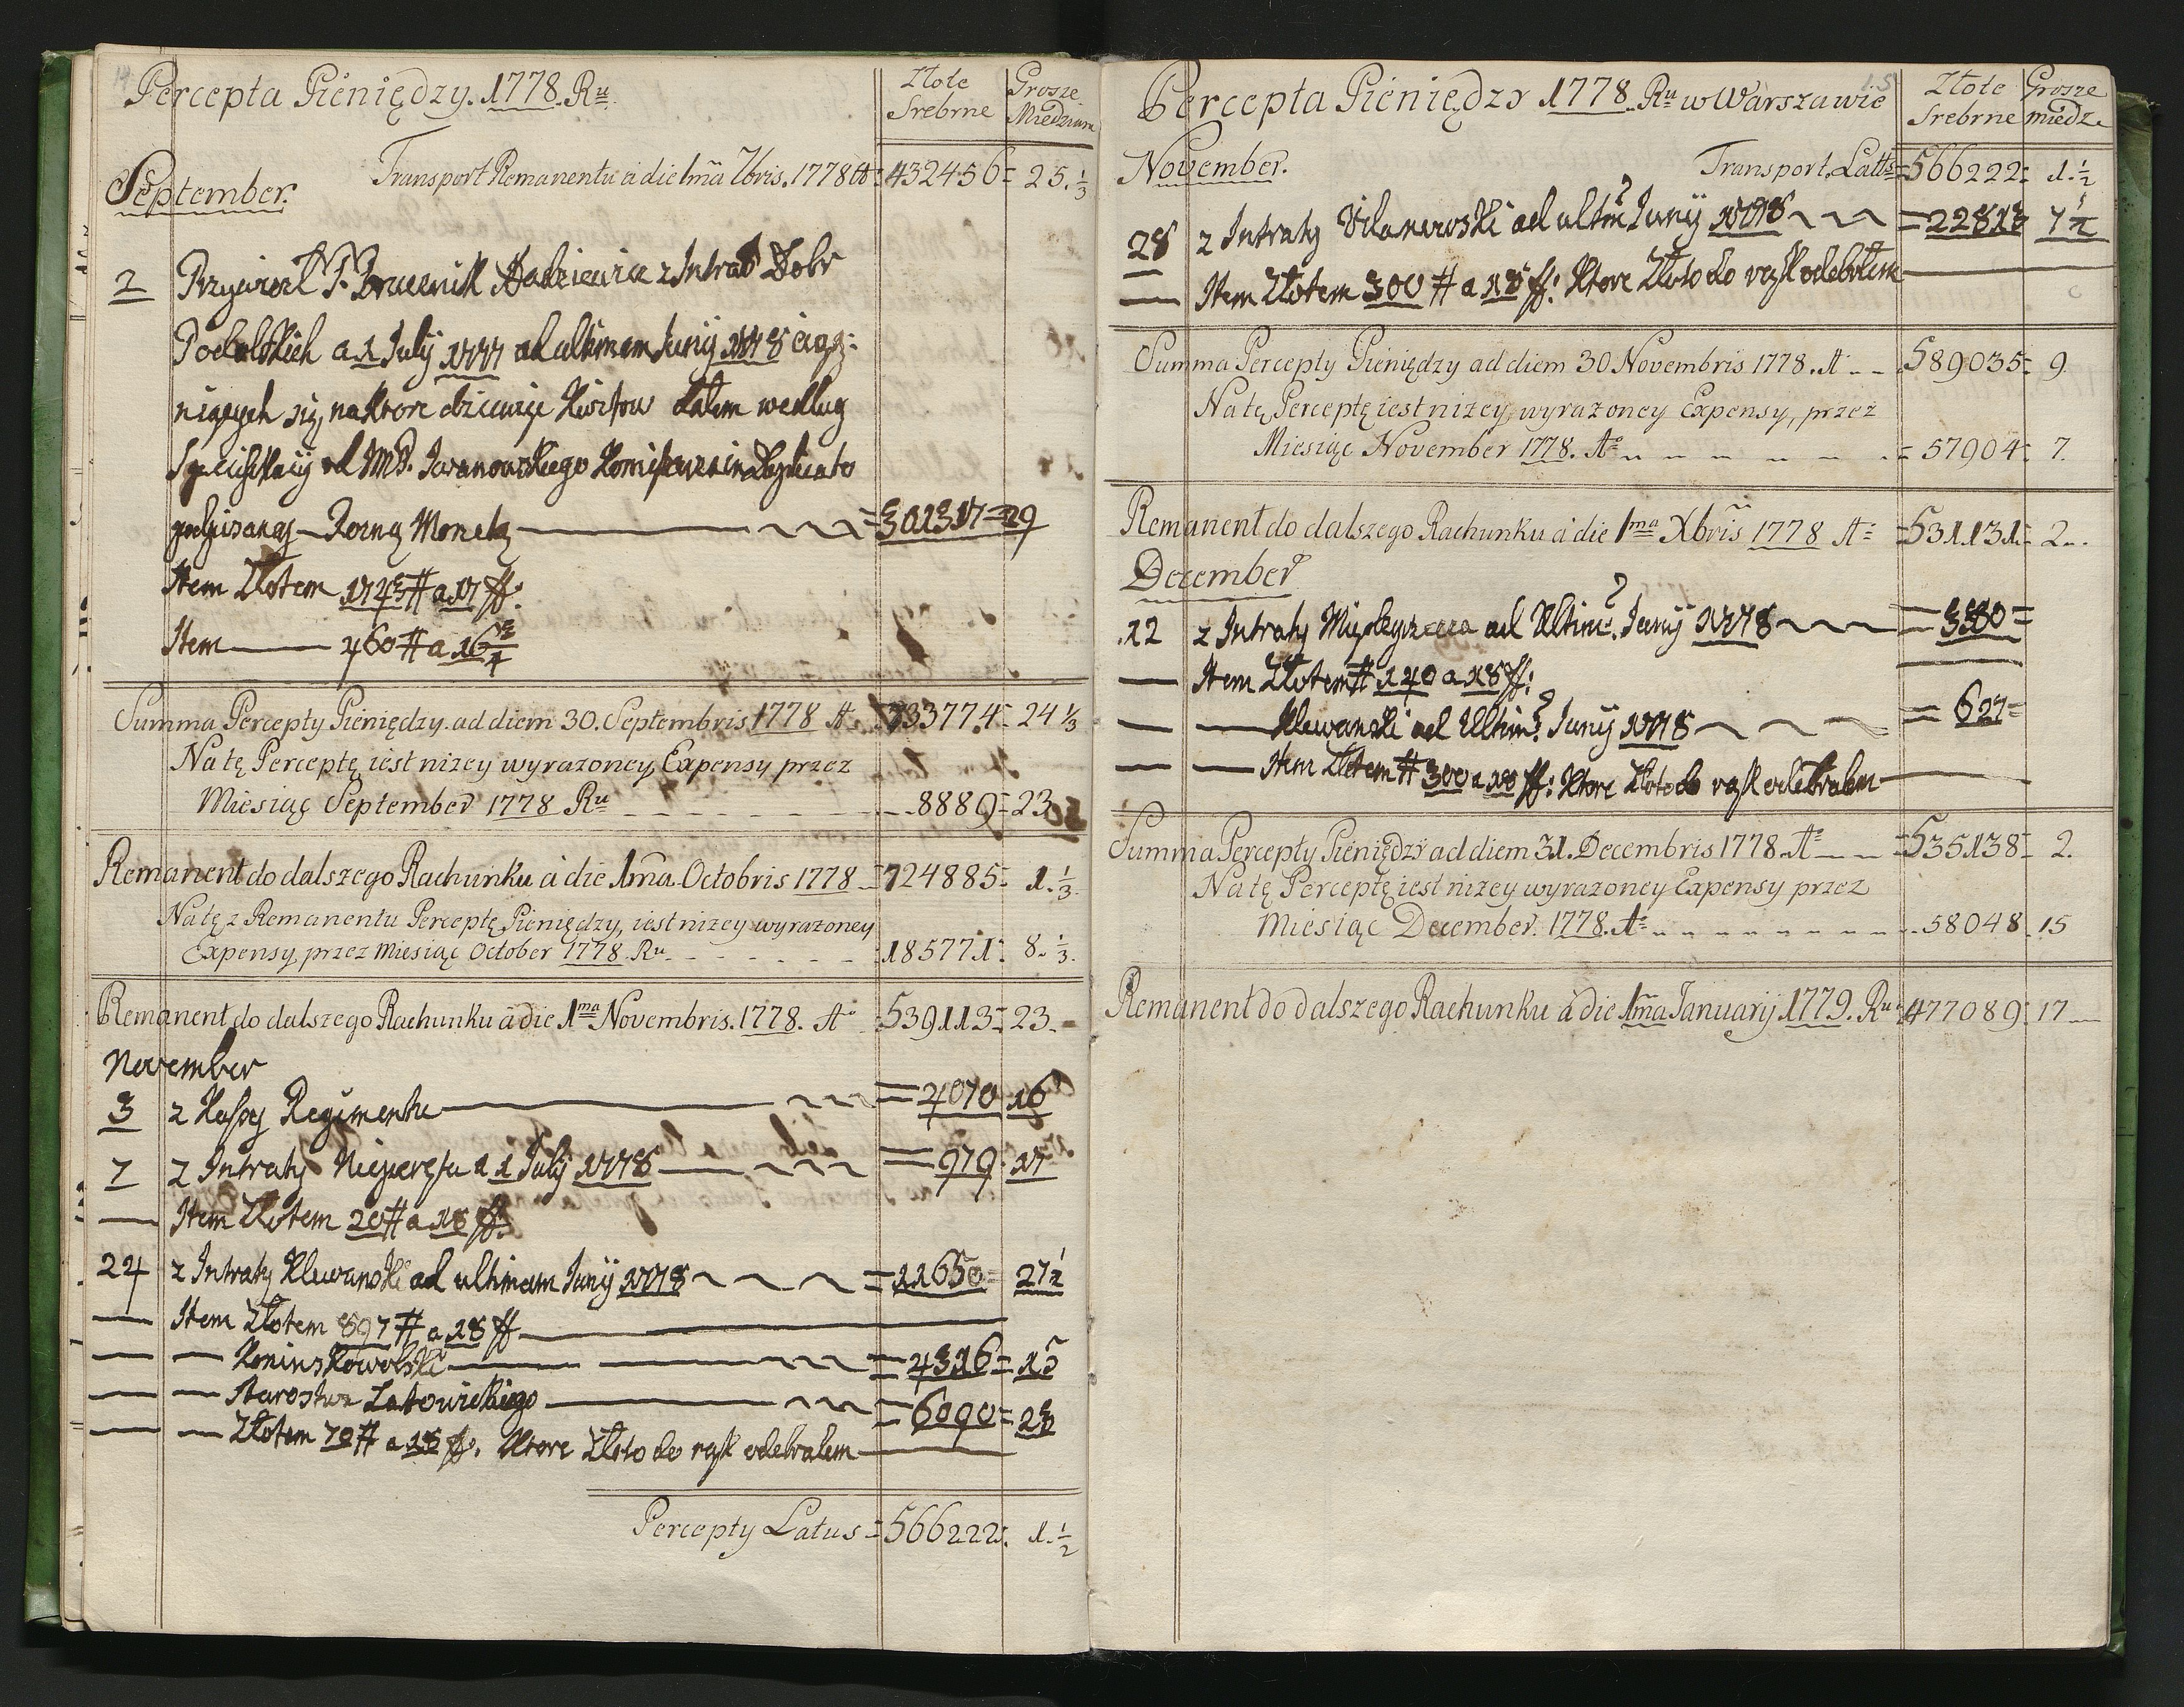 14
Percepta Pieniędzy. 1778. Ru
Złote Srebrne
Grosze Miedziane
September.
Transport Remanentu á die 1ma 7bris. 1778 At = 432456 = 25. 1/3
2 Przywiozł P. Budziewicz z Intrat Dobr
Podolskich a 1 July 1777 ad ultimam Junij 1778 ciąg:
niących się, na ktore Kwitow dałem według
od JMP. Iwanowskiego
podpisaney – Rożną Monetą = 301317 = 29
Item Złotem 1743 # a 17 ff:
Item — 460 # a 16 3/4
Summa Percepty Pieniędzy. ad diem 30. Septembris 1778 At. 733774 = 24 1/3
Na tę Perceptę iest niżey wyrażoney Expensy przez
Miesiąc September 1778 Ru - - 8889 = 23
Remanent do dalszego Rachunku á die 1ma. Octobris 1778 = 724885 = 1. 1/3.
Na tę z Remanentu Perceptę Pieniędzy, iest niżey wyrażoney
Expensy przez Miesiąc October 1778 Ru - - 185771: 8. 1/3.
Remanent do dalszego Rachunku á die 1ma Novembris. 1778. At = 539113 = 23. =
November
3 z Kassy Regimentu = 4070 16
7 z Intraty Nieporętu a 1 July 1778 = 979. 17
— Item Złotem 20 # a 18 ff.
24 z Intraty Klewański ad ultimam Junij 1778 = 11650 = 27 1/2
— Item Złotem 897 # a 18 ff
— — Koninskowolski = 4316 = 15
— — Starostwa Latowickiego = 6090 = 23
— — Złotem 70 # a 18 ff. Ktore Złoto do rąk odebrałem
Percepty Latus = 566222: 1. 1/2
15
Percepta Pieniędzy 1778. Ru w Warszawie
Złote Srebrne
Grosze miedz.
November.
Transport Latts = 566222: 1. 1/2
28 z Intraty Vilanowski ad ultim Junij 1778 = 22813 7 1/2
— Item Złotem 300 # a 18 ff: Ktore Złoto do rąk odebrałem
Summa Percepty Pieniędzy ad diem 30 Novembris 1778. At - - 589035 = 9.
Na tę Perceptę iest niżey wyrażoney Expensy, przez
Miesiąc November 1778. At = 57904: 7.
Remanent do dalszego Rachunku á die 1ma Xbris 1778 At = 531131 = 2..
December
12 z Intraty ad Ultim. Junij 1778 = 3380 =
— Item Złotem # 140 a 18 ff:
— — Klewanski ad Ultim. Junij 1778 = 627 =
— — Item Złotem # 300 a 18 ff: Ktore Złoto do rąk odebrałem
Summa Percepty Pieniędzy ad diem 31. Decembris 1778. At = 535138 = 2.
Na tę Perceptę iest niżey wyrażoney Expensy przez
Miesiąc December. 1778. At - - 58048 15
Remanent do dalszego Rachunku á die 1ma Ianuarij 1779. Ru 477089: 17